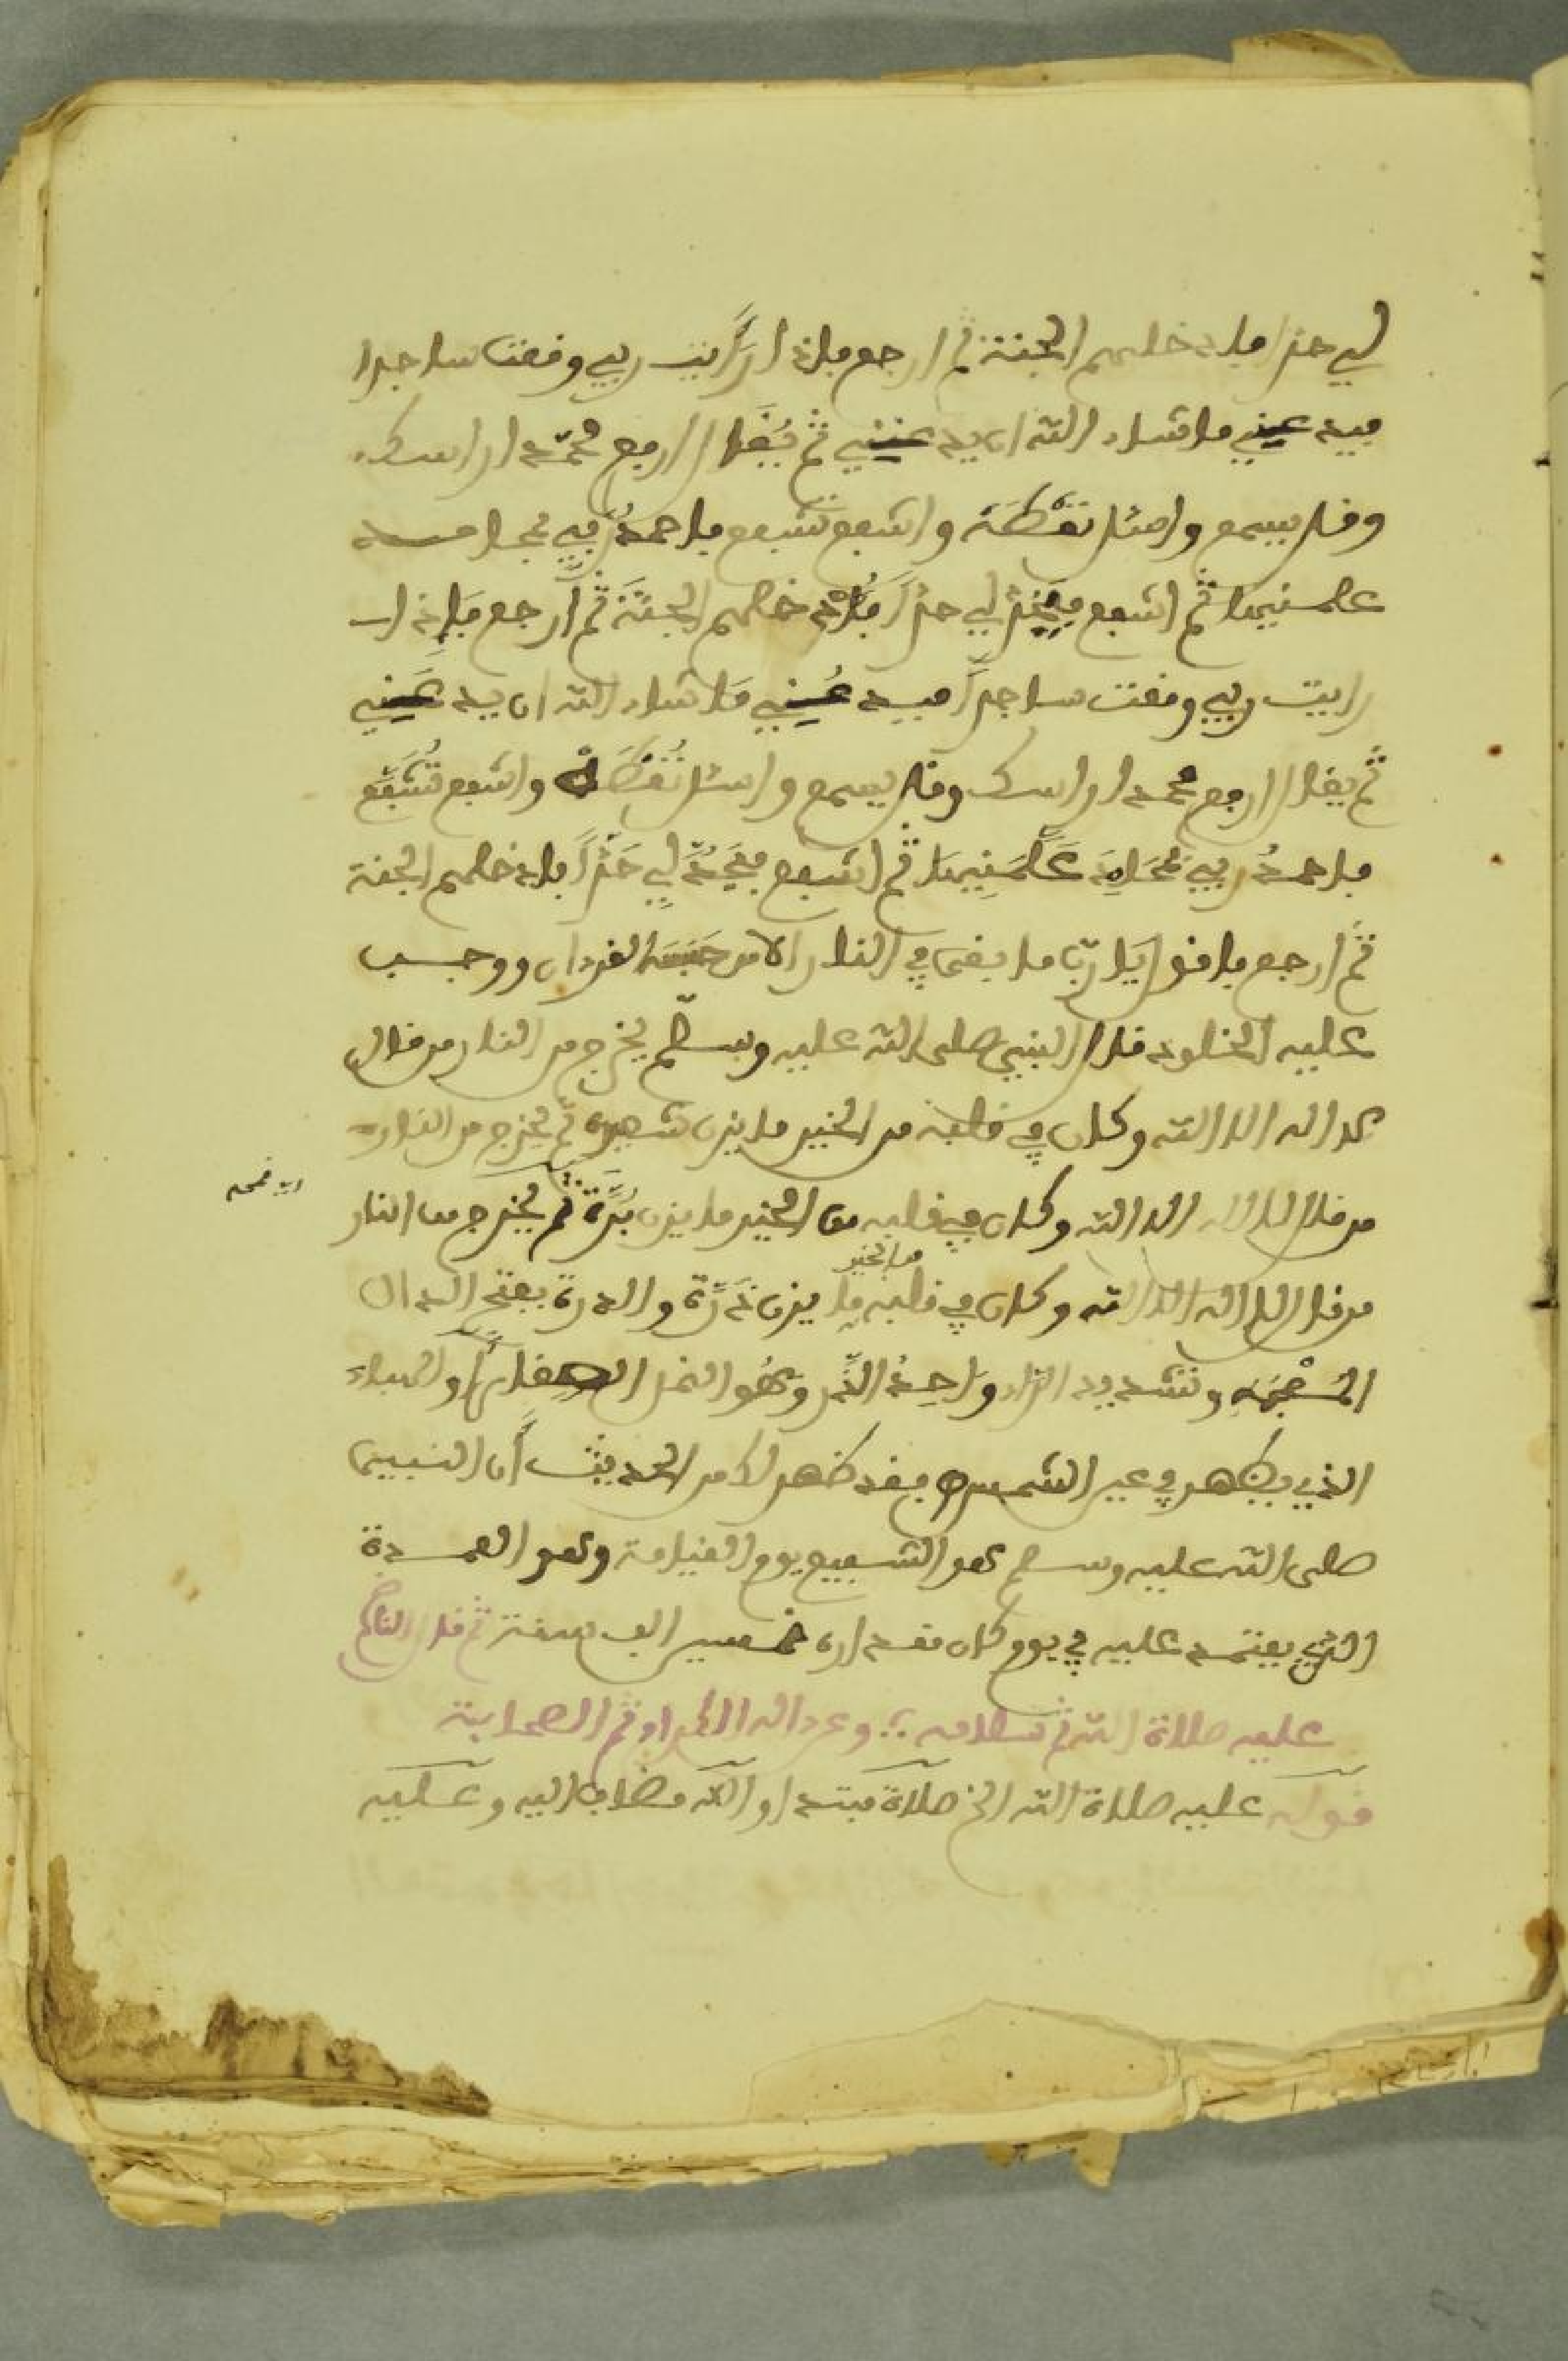 لي حدا فادخلهم الجنة ثم ارجع فاذا رَأَيت ربي وقعت ساجدا
فيدعني ما شاء الله ان يدعني ثم يُقَال ارفع محمد راسك
وقل يسمع واسئل تعْطَه واشفع تشفع فاحمدُ ربي بمحامد
علمنيها ثم اشفع فيحد لي حدّاً فَأُدْخلهم الجنّة ثم أرجع فَإِذا
رايت ربي وقعت ساجداً فيدعُني مَا شاء الله ان يدعَني
ثم يقال ارفع محمد راسك وقل يسمع واسئل تُعْطَهْ واشفع تُشَفَّع
فاحمدُ ربي بمحَامِدَ عَلَّمَنِيهَا ثم اشفع فيَحُدُّ لِي حَدّاً فادخلهم الجنة
ثم ارجع فاقول يَا ربّ ما بقى في النار الا من حَبَسَه القرءان ووجب
عليه الخلود قال النبي صلى الله عليه وسلّم يخرج من النار من قال
لا اله الا الله وكان في قلبه من الخير ما يزن شعيرة ثم يخرج من النار
من قال لا اله الا الله وكان في قلبه من الخير ما يزن بُرَّة ثم يخرج من النار
اي قمحه
من قال لا اله الا الله وكان في قلبه من الخير ما يزن ذَرَّة والذرة بفتح الذال
المُعْجَمَة وتشديد الراء وَاحِدُ الذَّر وهُو النمل الصغار أو الهباء
الذي يظهر في عين الشمس فقد ظهر لك من الحديث أَن النبي
صلى الله عليه وسلم هو الشفيع يوم القيامة وهو العمدة
الذي يعتمد عليه في يوم كان مقداره خمسين الف سنة ثم قال الناظم
عليه صلاة الله ثم سلامه ؛ وعن اله الابرار ثم الصحابة
قوله عليه صلاة الله الخ صلاة مبتدا والله مضاف اليه وعليه